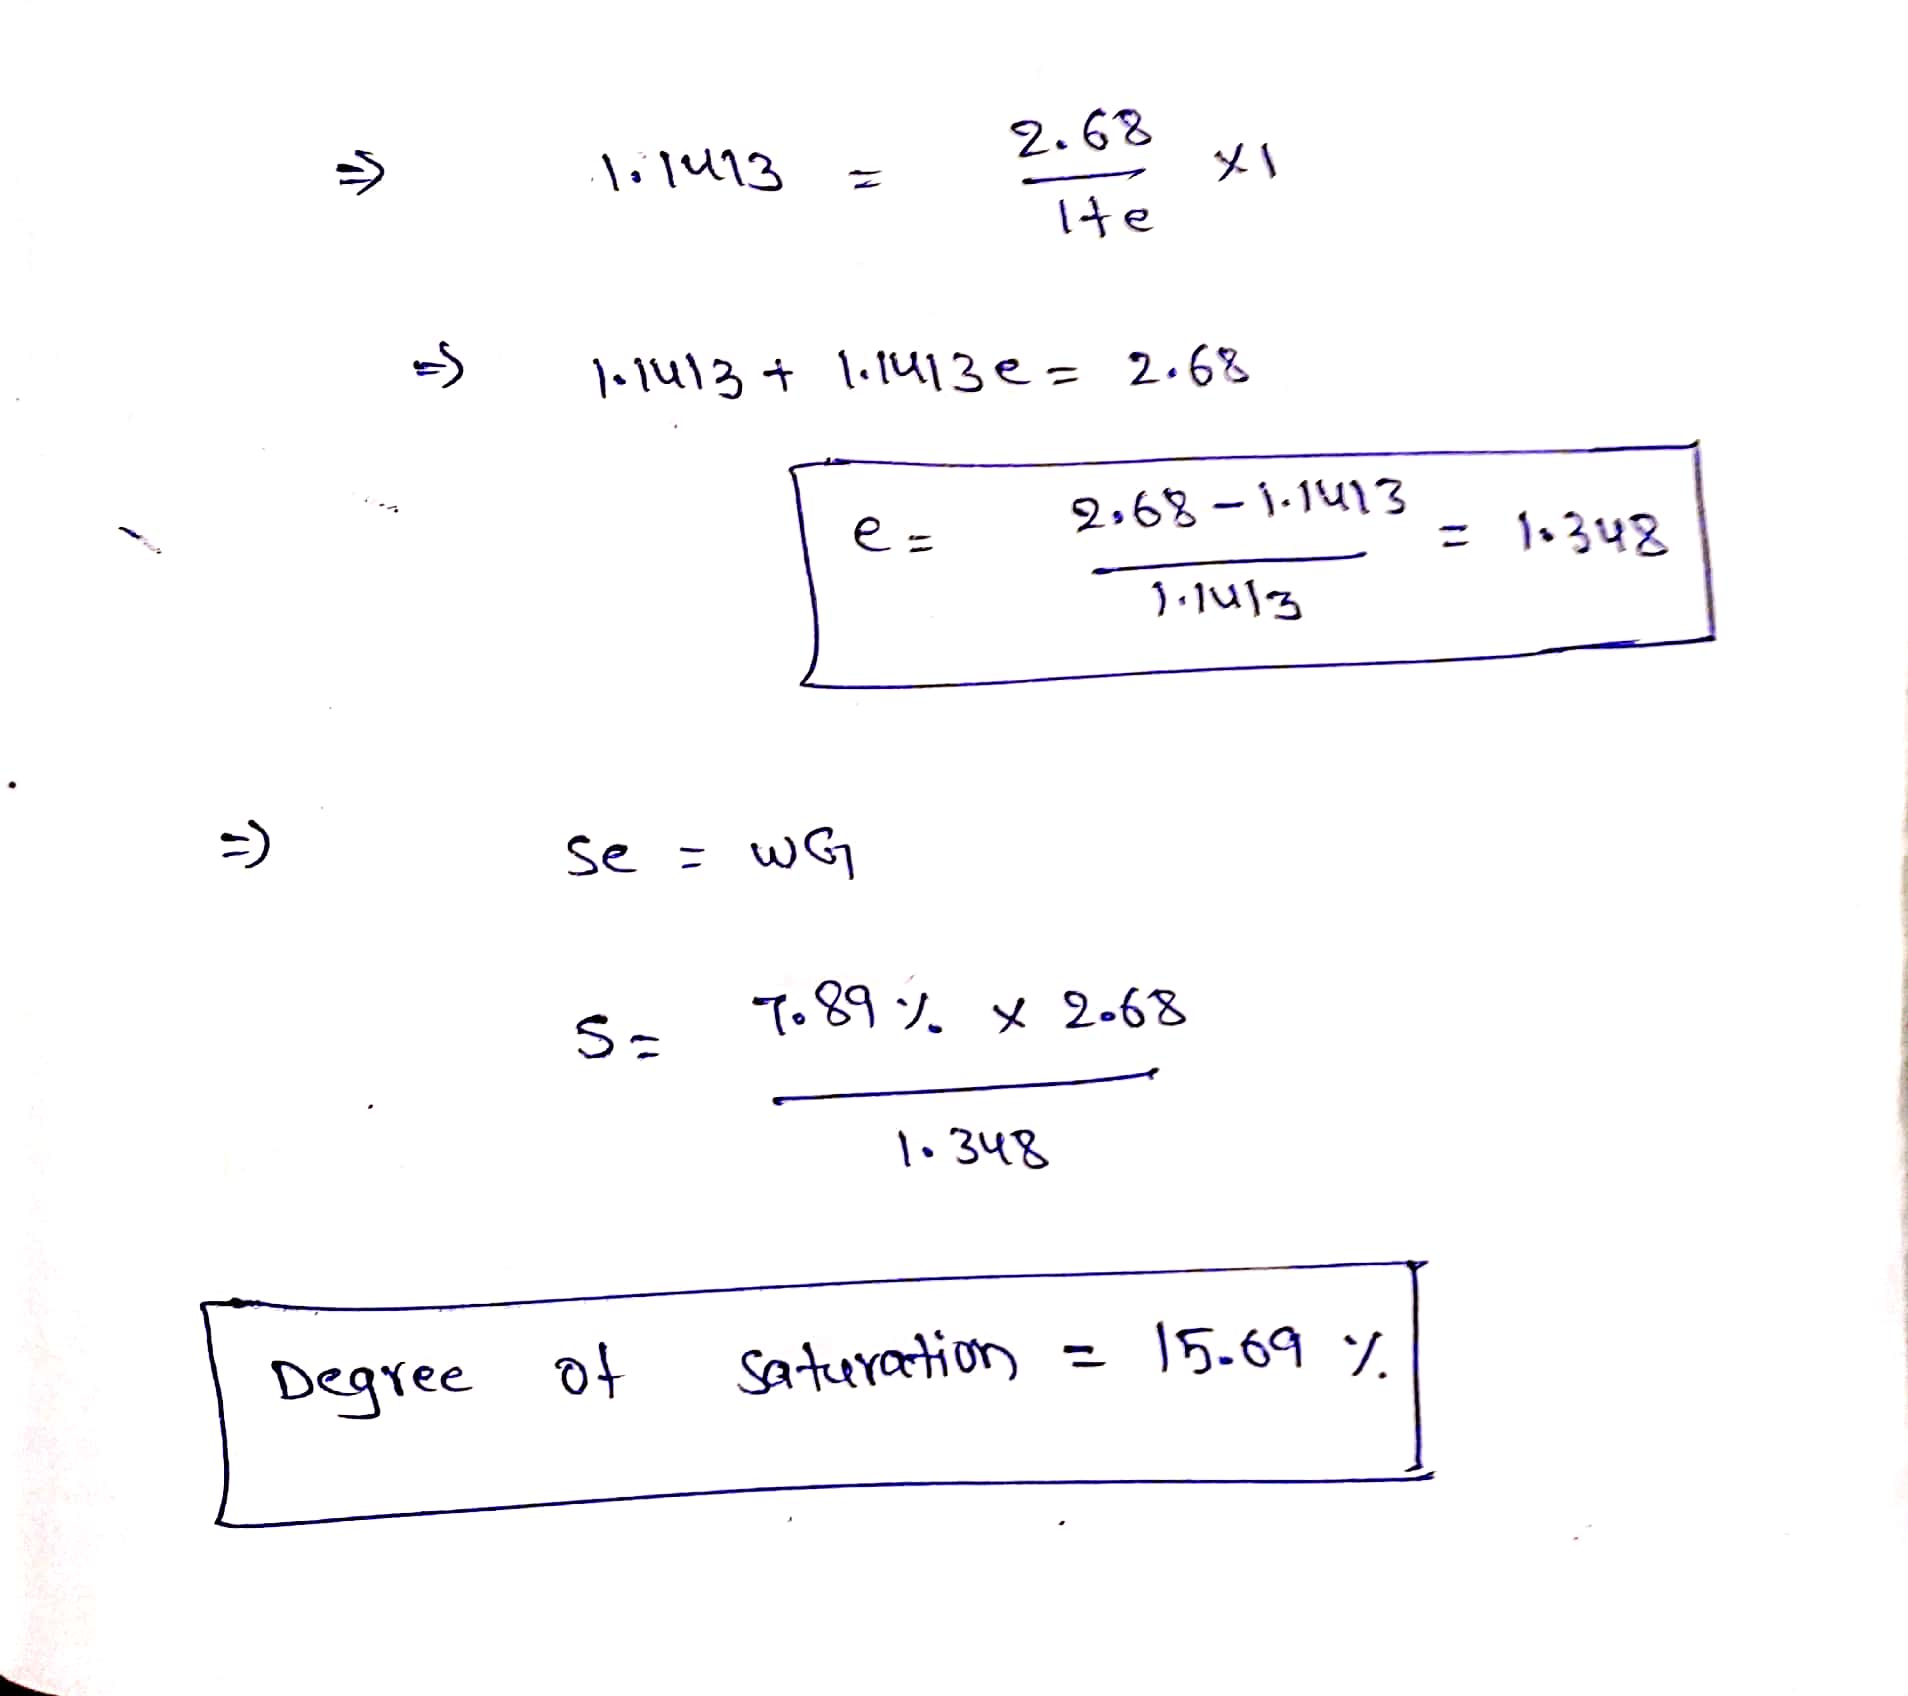 ⇒ 1.1413 = 2.68 / 1+e ×1
⇒ 1.1413 + 1.1413e = 2.68
e = 2.68 - 1.1413 / 1.1413 = 1.348
⇒ Se = wG
S = 7.89 % × 2.68 / 1.348
Degree of saturation = 15.69 %